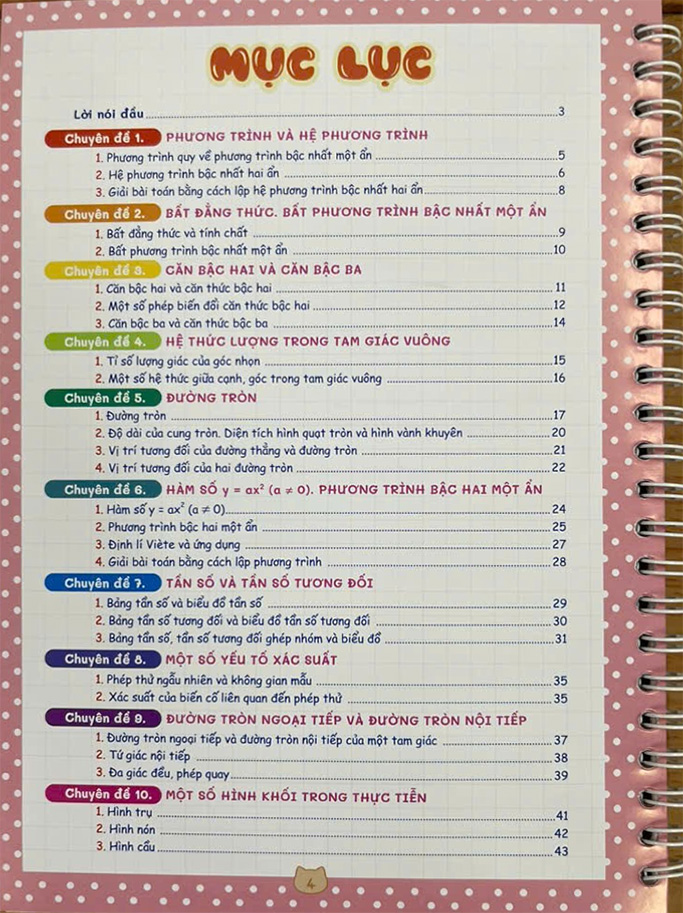 MỤC LỤC
Lời nói đầu 3
Chuyên đề 1. PHƯƠNG TRÌNH VÀ HỆ PHƯƠNG TRÌNH
1. Phương trình quy về phương trình bậc nhất một ẩn 5
2. Hệ phương trình bậc nhất hai ẩn 6
3. Giải bài toán bằng cách lập hệ phương trình bậc nhất hai ẩn 8
Chuyên đề 2. BẤT ĐẲNG THỨC. BẤT PHƯƠNG TRÌNH BẬC NHẤT MỘT ẨN
1. Bất đẳng thức và tính chất 9
2. Bất phương trình bậc nhất một ẩn 10
Chuyên đề 3. CĂN BẬC HAI VÀ CĂN BẬC BA
1. Căn bậc hai và căn thức bậc hai 11
2. Một số phép biến đổi căn thức bậc hai 12
3. Căn bậc ba và căn thức bậc ba 14
Chuyên đề 4. HỆ THỨC LƯỢNG TRONG TAM GIÁC VUÔNG
1. Tỉ số lượng giác của góc nhọn 15
2. Một số hệ thức giữa cạnh, góc trong tam giác vuông 16
Chuyên đề 5. ĐƯỜNG TRÒN
1. Đường tròn 17
2. Độ dài của cung tròn. Diện tích hình quạt tròn và hình vành khuyên 20
3. Vị trí tương đối của đường thẳng và đường tròn 21
4. Vị trí tương đối của hai đường tròn 22
Chuyên đề 6. HÀM SỐ y = ax² (a ≠ 0). PHƯƠNG TRÌNH BẬC HAI MỘT ẨN
1. Hàm số y = ax² (a ≠ 0) 24
2. Phương trình bậc hai một ẩn 25
3. Định lí Viète và ứng dụng 27
4. Giải bài toán bằng cách lập phương trình 28
Chuyên đề 7. TẦN SỐ VÀ TẦN SỐ TƯƠNG ĐỐI
1. Bảng tần số và biểu đồ tần số 29
2. Bảng tần số tương đối và biểu đồ tần số tương đối 30
3. Bảng tần số, tần số tương đối ghép nhóm và biểu đồ 31
Chuyên đề 8. MỘT SỐ YẾU TỐ XÁC SUẤT
1. Phép thử ngẫu nhiên và không gian mẫu 35
2. Xác suất của biến cố liên quan đến phép thử 35
Chuyên đề 9. ĐƯỜNG TRÒN NGOẠI TIẾP VÀ ĐƯỜNG TRÒN NỘI TIẾP
1. Đường tròn ngoại tiếp và đường tròn nội tiếp của một tam giác 37
2. Tứ giác nội tiếp 38
3. Đa giác đều, phép quay 39
Chuyên đề 10. MỘT SỐ HÌNH KHỐI TRONG THỰC TIỄN
1. Hình trụ 41
2. Hình nón 42
3. Hình cầu 43
4